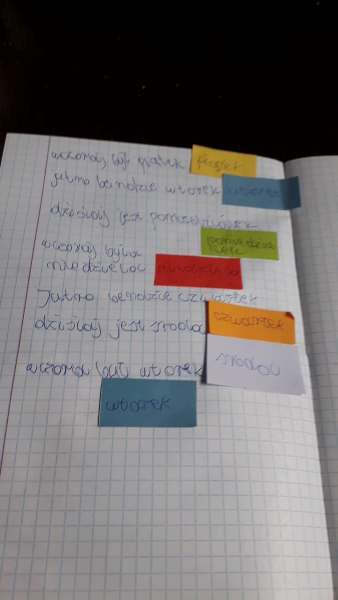 wczoraj był piątek piątek
jutro bendzie wtorek wtorek
dzisiaj jest poniedziałek
poniedziałek
wczoraj była
niedziela niedziela
Jutro bendzie czwartek
dzisiaj jest środa czwartek
środa
wczoraj był wtorek
wtorek